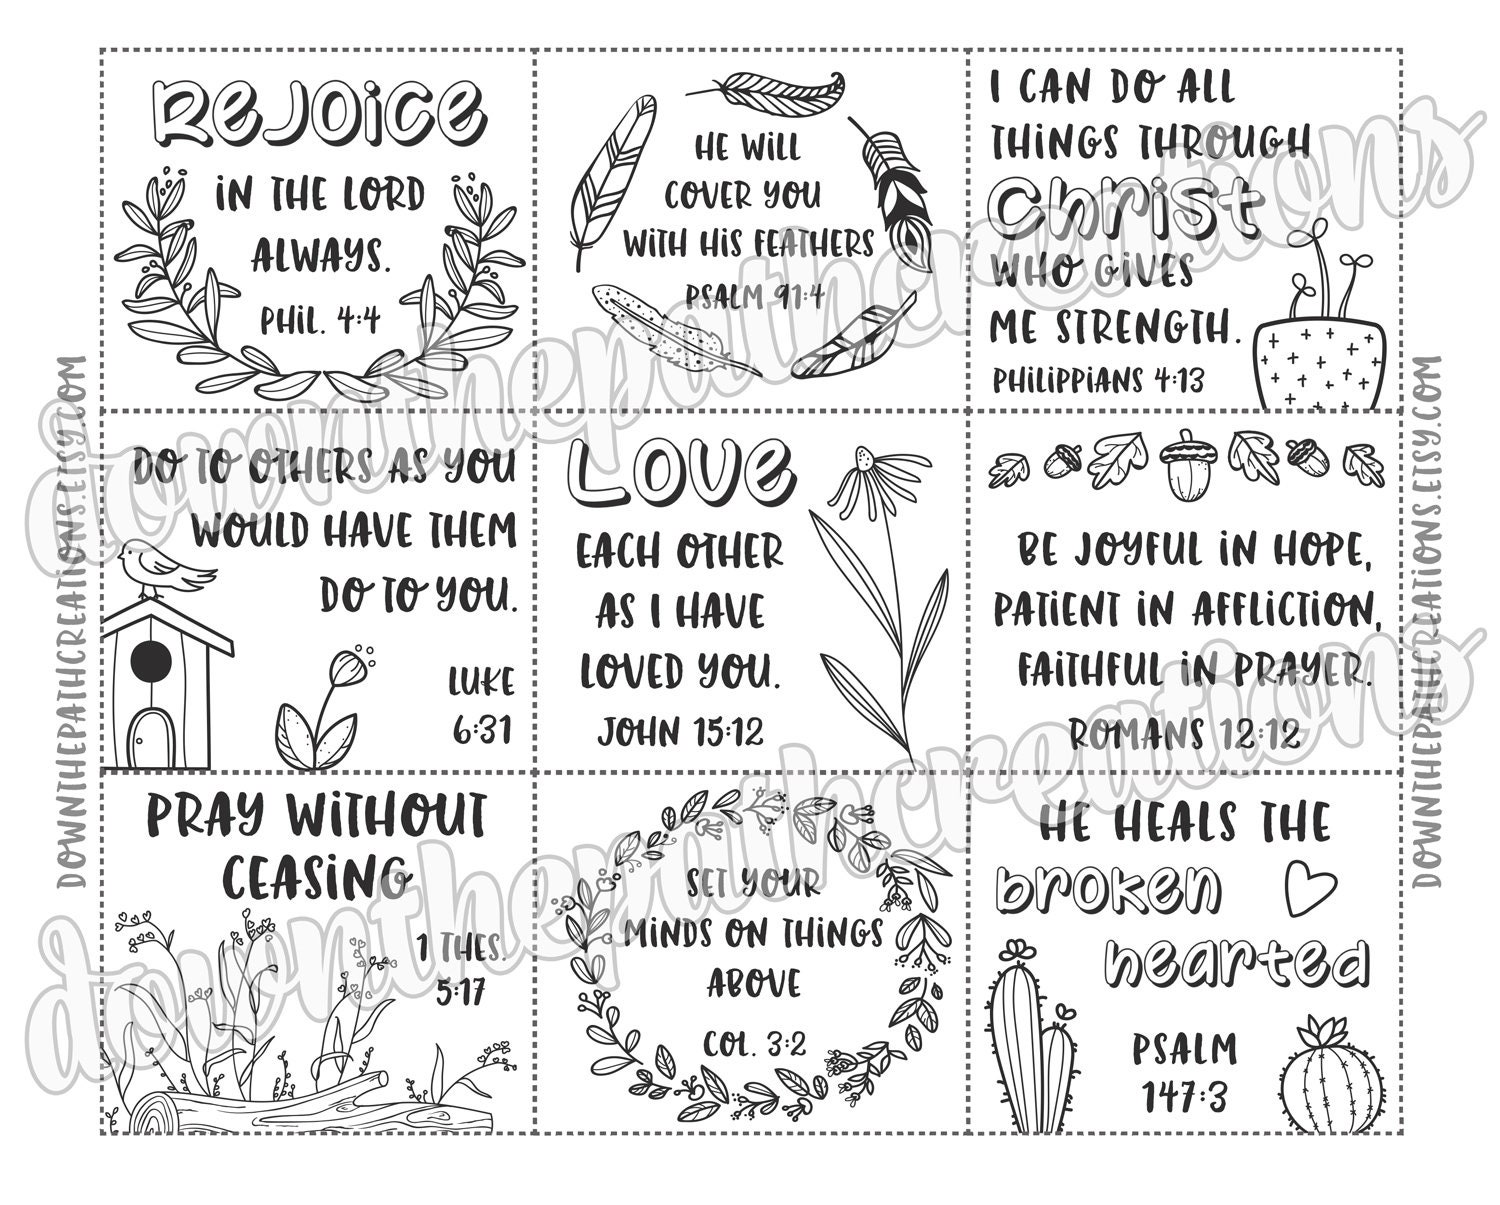 REJOICE
IN THE LORD
ALWAYS.
PHIL. 4:4
HE WILL
COVER YOU
WITH HIS FEATHERS
PSALM 91:4
I CAN DO ALL
THINGS THROUGH
Christ
WHO GIVES
ME STRENGTH.
PHILIPPIANS 4:13
DO TO OTHERS AS YOU
WOULD HAVE THEM
DO TO YOU.
LUKE
6:31
LOVE
EACH OTHER
AS I HAVE
LOVED YOU.
JOHN 15:12
BE JOYFUL IN HOPE,
PATIENT IN AFFLICTION,
FAITHFUL IN PRAYER.
ROMANS 12:12
PRAY WITHOUT
CEASING
1 THES.
5:17
SET YOUR
MINDS ON THINGS
ABOVE
COL. 3:2
HE HEALS THE
broken
hearted
PSALM
147:3
DOWNTHEPATHCREATIONS.ETSY.COM
DOWNTHEPATHCREATIONS.ETSY.COM
downthepathcreations
downthepathcreations